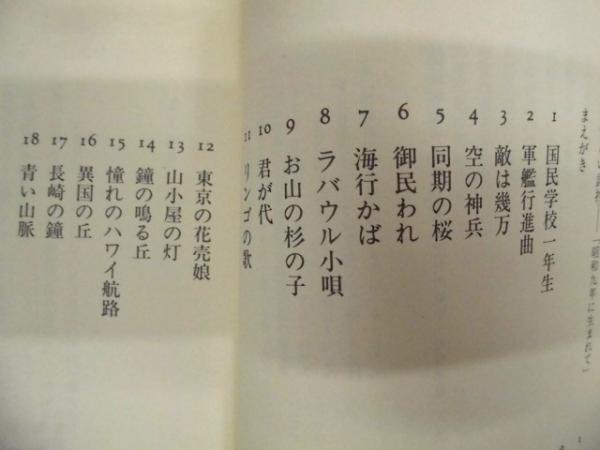 「昭和九年に生まれて」
まえがき
1 国民学校一年生
2 軍艦行進曲
3 敵は幾万
4 空の神兵
5 同期の桜
6 御民われ
7 海行かば
8 ラバウル小唄
9 お山の杉の子
10 君が代
11 リンゴの歌
12 東京の花売娘
13 山小屋の灯
14 鐘の鳴る丘
15 憧れのハワイ航路
16 異国の丘
17 長崎の鐘
18 青い山脈